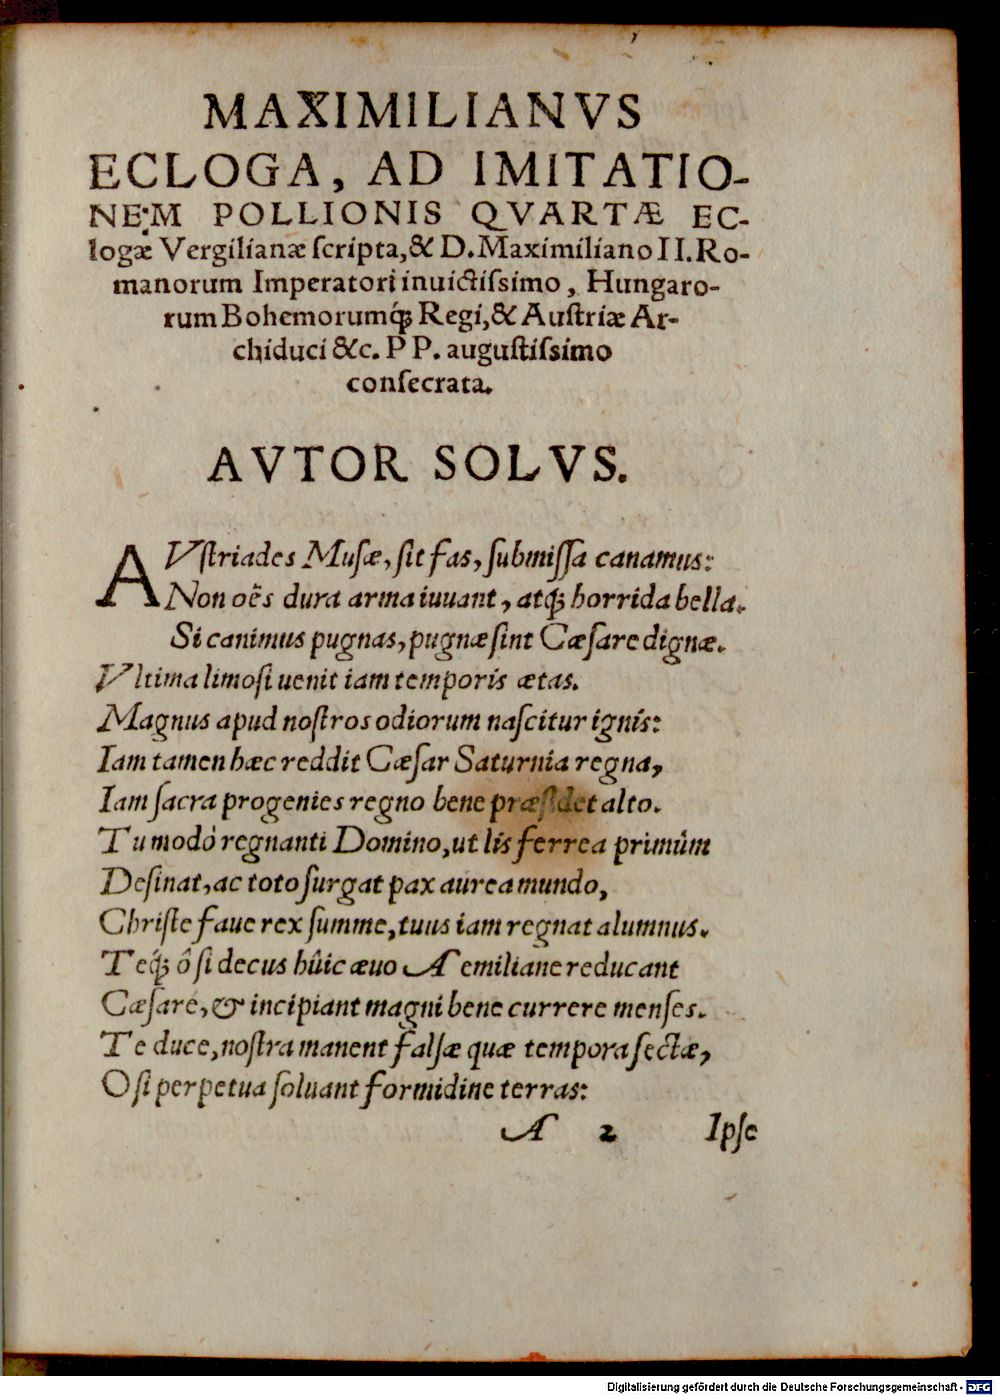 MAXIMILIANVS
ECLOGA, AD IMITATIO-
NEM POLLIONIS QVARTÆ EC-
logæ Vergilianæ ſcripta, & D. Maximiliano II. Ro-
manorum Imperatori inuictiſsimo, Hungaro-
rum Bohemorumq́ꝫ Regi, & Auſtriæ Ar-
chiduci &c. PP. auguſtiſsimo
conſecrata.
AVTOR SOLVS.
AVſtriades Muſæ, ſit fas, ſubmiſſa canamus:
Non oẽs dura arma iuuant, atqꝫ horrida bella.
Si canimus pugnas, pugnæ ſint Cæſare dignæ.
Vltima limoſi uenit iam temporis ætas.
Magnus apud noſtros odiorum naſcitur ignis:
Iam tamen hæc reddit Cæſar Saturnia regna,
Iam ſacra progenies regno bene præſidet alto.
Tu modò regnanti Domino, ut lis ferrea primùm
Deſinat, ac toto ſurgat pax aurea mundo,
Chriſte faue rex ſumme, tuus iam regnat alumnus.
Teq́ꝫ ô ſi decus hûic æuo Aemiliane reducant
Cæſare, & incipiant magni bene currere menſes.
Te duce, noſtra manent falſæ quæ tempora ſectæ,
O ſi perpetua ſoluant formidine terras:
A 2 Ipſe
Digitalisierung gefördert durch die Deutsche Forschungsgemeinschaft - DFG